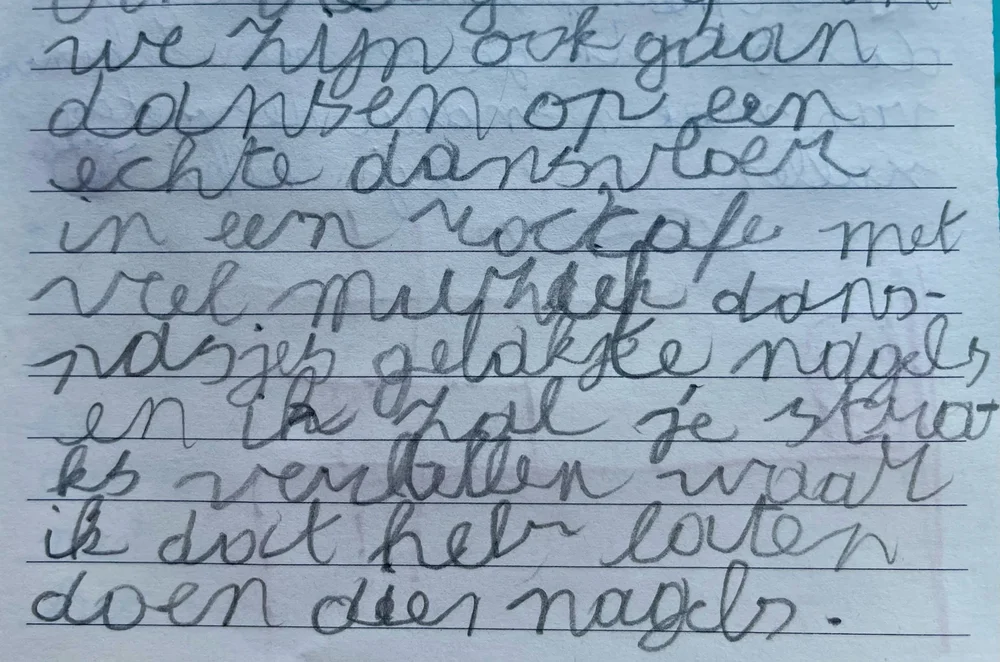 we zijn ook gaan
dansen op een
echte dansvloer
in een rockcafe met
viel muziek dans-
pasjes gelakste nagels
en ik zal je strat
ks vertellen waar
ik dat heb laten
doen die nagels.